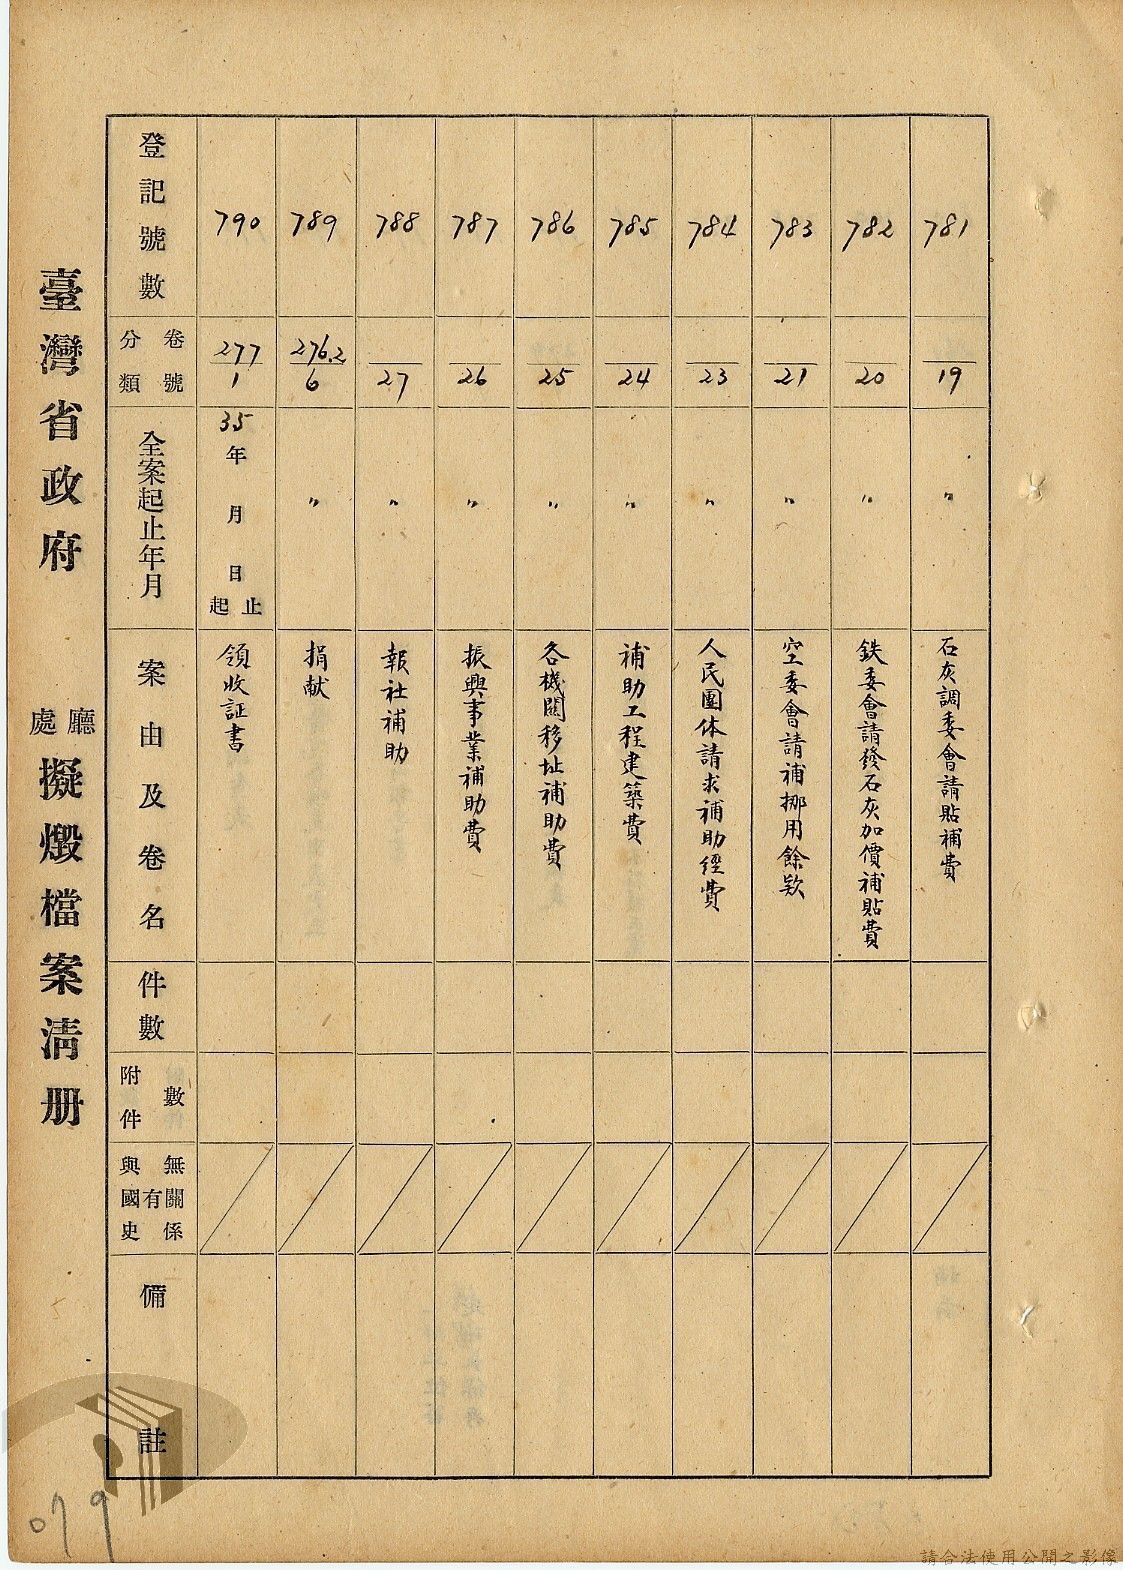 臺灣省政府 廳處擬燬檔案清册
登記號數
卷號分類
全案起止年月
案由及卷名
件數
附件數
與國史有無關係
備註
781
19
〃
石灰調委會請貼補費
782
20
〃
鉄委會請發石灰加價補貼費
783
21
〃
空委會請補挪用餘欵
784
23
〃
人民團体請求補助經費
785
24
〃
補助工程建築費
786
25
〃
各機關移址補助費
787
26
〃
振興事業補助費
788
27
〃
報社補助
789
276.2
6
〃
捐献
790
277
1
35年 月 日起止
領收証書
079
請合法使用公開之影像